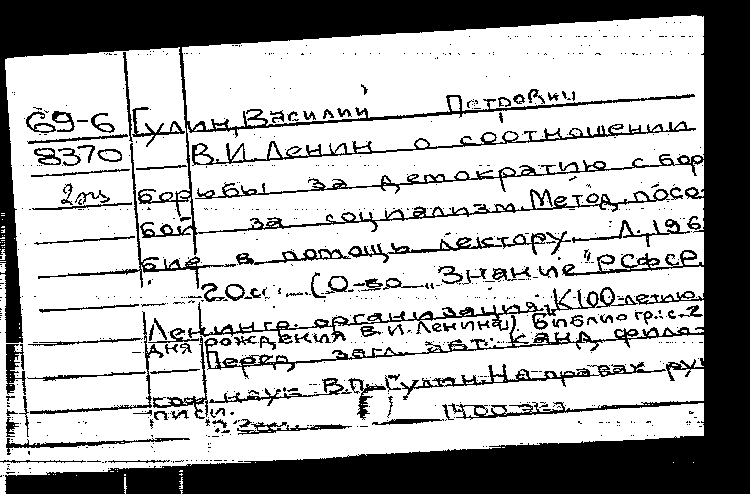 69-6 Гулин, Василий Петрович
8370 В.И. Ленин о соотношении
2 экз борьбы за демократию с бор
бой за социализм. Метод. посо
бие в помощь лектору. Л., 196
20с. (О-во "Знание" РСФСР.
Ленингр. организация. К 100-летию
дня рождения В.И. Ленина). Библиогр.: с. 2
Перед загл. авт.: канд. филос
соф. наук В.П. Гулин. На правах рук
писи.
14.00 экз.